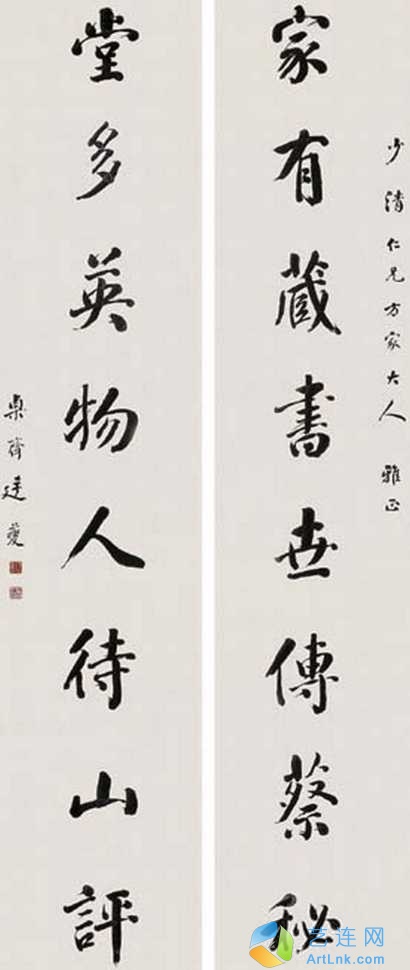 少清仁兄方家大人 雅正
家有藏書世傳蔡秘
堂多英物人待山評
艺连网
ArtLnk.com